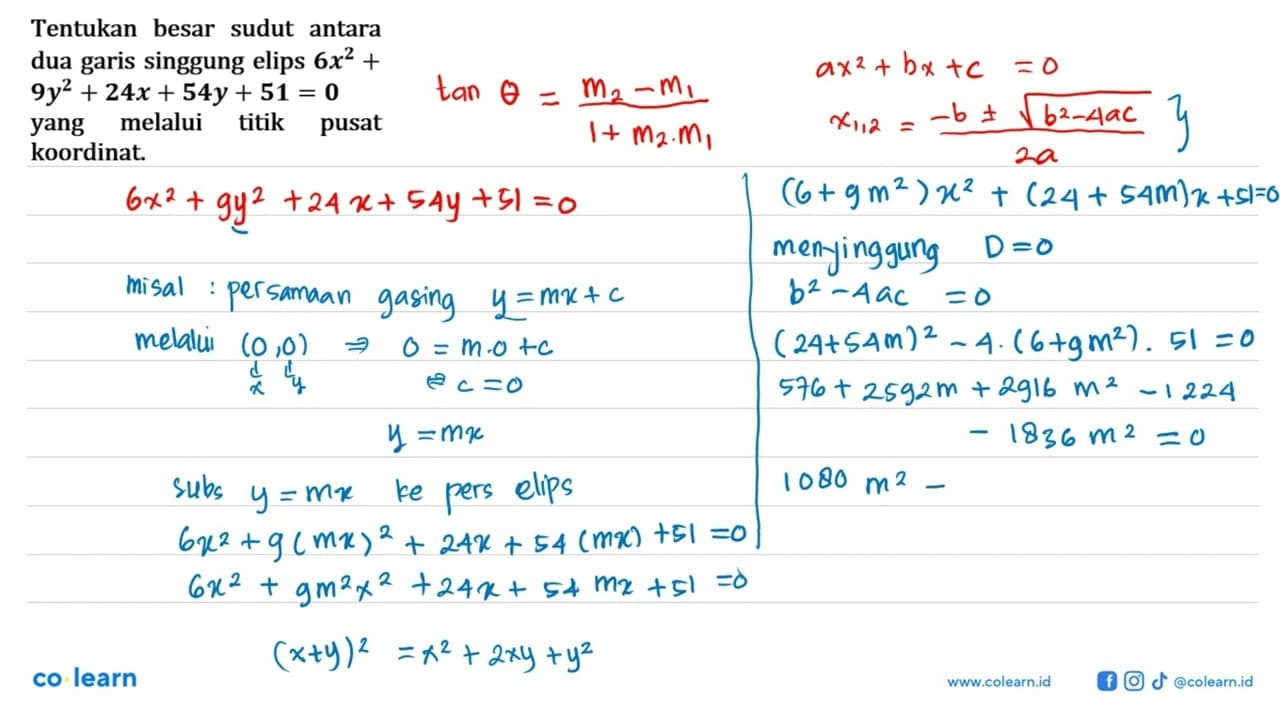 Tentukan besar sudut antara
dua garis singgung elips 6x² +
9y² + 24x + 54y + 51 = 0
yang melalui titik pusat
koordinat.
tan θ = (m₂ - m₁)/(1 + m₂.m₁)
ax² + bx + c = 0
x₁,₂ = (-b ± √(b²-4ac))/(2a) }
6x² + 9y² + 24x + 54y + 51 = 0
misal : persamaan gasing y = mx + c
melalui (0,0) ⇒ 0 = m.0 + c
x y ⇔ c = 0
y = mx
subs y = mx ke pers elips
6x² + 9(mx)² + 24x + 54(mx) + 51 = 0
6x² + 9m²x² + 24x + 54 mx + 51 = 0
(x+y)² = x² + 2xy + y²
(6 + 9m²)x² + (24 + 54m)x + 51 = 0
menyinggung D = 0
b² - 4ac = 0
(24 + 54m)² - 4.(6 + 9m²). 51 = 0
576 + 2592m + 2916 m² - 1224
- 1836 m² = 0
1080 m² -
co learn
www.colearn.id
@colearn.id